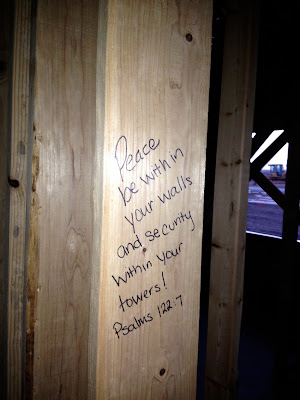 Peace
be with in
your walls
and security
within your
towers!
Psalms 122:7